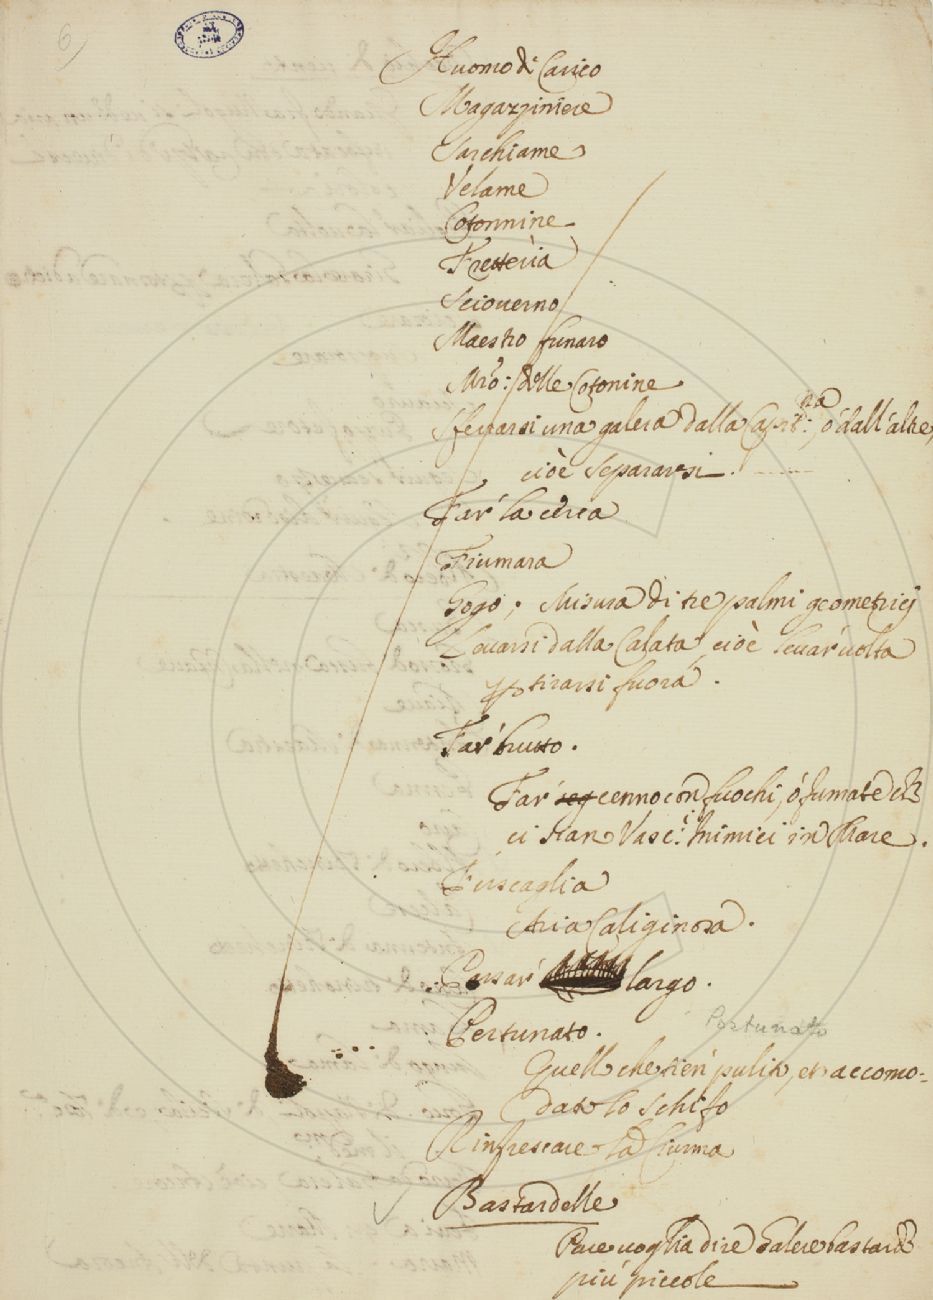 6
Huomo di Carico
Magazziniere
Sarchiame
Velame
Cotonnine
Fretteria
Sciouerno
Maestro funaro
Mro: delle Cotonine
Sferrarsi una galera dalla Capit:na, ó dall'altre,
cioè separarsi.
Far' la cerca
Fiumara
Gogo, Misura di tre palmi geometrici
Leuarsi dalla Calata, cioè leuar' uolta
tirarsi fuora.
Far' brutto.
Far' seg cenno con fuochi, ó fumate
ci sian Vasc:i Inimici in Mare.
Fuscaglia
Aria Caliginosa.
Passar' largo.
Pertunato.
Portunato
Quello che tien' pulito, et accomo-
dato lo schifo
Rinfrescare la Ciurma
Bastardelle
Pare uoglia dire Galere bastarde
più piccole